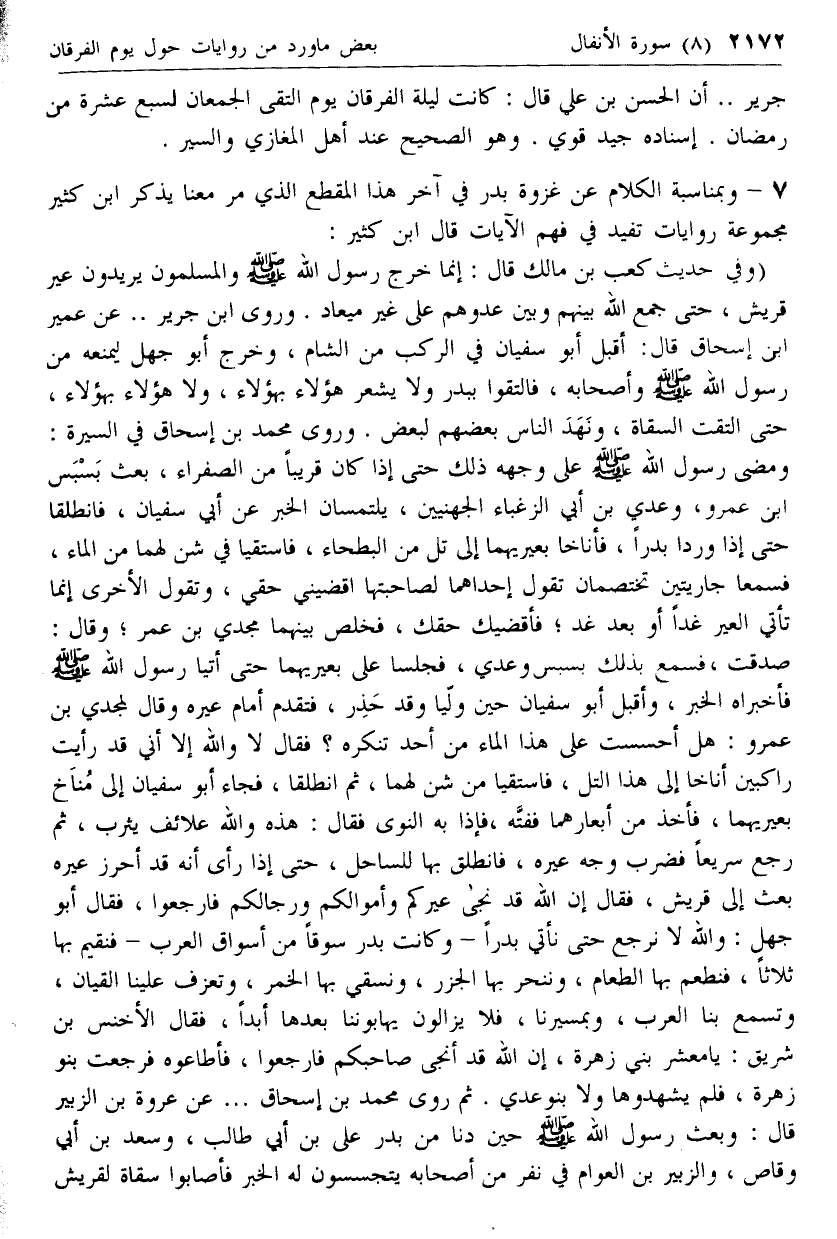 ٢١٧٢ (٨) سورة الأنفال بعض ماورد من روايات حول يوم الفرقان
جرير .. أن الحسن بن علي قال : كانت ليلة الفرقان يوم التقى الجمعان لسبع عشرة من
رمضان . إسناده جيد قوي . وهو الصحيح عند أهل المغازي والسير .
٧ – وبمناسبة الكلام عن غزوة بدر في آخر هذا المقطع الذي مر معنا يذكر ابن كثير
مجموعة روايات تفيد في فهم الآيات قال ابن كثير :
(وفي حديث كعب بن مالك قال : إنما خرج رسول الله ﷺ والمسلمون يريدون عير
قريش ، حتى جمع الله بينهم وبين عدوهم على غير ميعاد . وروى ابن جرير .. عن عمير
ابن إسحاق قال: أقبل أبو سفيان في الركب من الشام ، وخرج أبو جهل ليمنعه من
رسول الله ﷺ وأصحابه ، فالتقوا ببدر ولا يشعر هؤلاء بهؤلاء ، ولا هؤلاء بهؤلاء ،
حتى التقت السقاة ، ونَهَدَ الناس بعضهم لبعض . وروى محمد بن إسحاق في السيرة :
ومضى رسول الله ﷺ على وجهه ذلك حتى إذا كان قريباً من الصفراء ، بعث بَسْبَس
ابن عمرو، وعدي بن أبي الزغباء الجهنيين ، يلتمسان الخبر عن أبي سفيان ، فانطلقا
حتى إذا وردا بدراً ، فأناخا بعيريهما إلى تل من البطحاء ، فاستقيا في شن لهما من الماء ،
فسمعا جاريتين تختصمان تقول إحداهما لصاحبتها اقضيني حقي ، وتقول الأخرى إنما
تأتي العير غداً أو بعد غد ؛ فأقضيك حقك ، فخلص بينهما مجدي بن عمر ؛ وقال :
صدقت ، فسمع بذلك بسبس وعدي ، فجلسا على بعيريهما حتى أتيا رسول الله ﷺ
فأخبراه الخبر ، وأقبل أبو سفيان حين ولّيا وقد حَذِر ، فتقدم أمام عيره وقال لمجدي بن
عمرو : هل أحسست على هذا الماء من أحد تنكره ؟ فقال لا والله إلا أني قد رأيت
راكبين أناخا إلى هذا التل ، فاستقيا من شن لهما ، ثم انطلقا ، فجاء أبو سفيان إلى مُنَاخ
بعيريهما ، فأخذ من أبعارهما ففتَّه ،فإذا به النوى فقال : هذه والله علائف يثرب ، ثم
رجع سريعاً فضرب وجه عيره ، فانطلق بها للساحل ، حتى إذا رأى أنه قد أحرز عيره
بعث إلى قريش ، فقال إن الله قد نجىٰ عيركم وأموالكم ورجالكم فارجعوا ، فقال أبو
جهل : والله لا نرجع حتى نأتي بدراً – وكانت بدر سوقاً من أسواق العرب – فنقيم بها
ثلاثاً ، فنطعم بها الطعام ، وننحر بها الجزر ، ونسقي بها الخمر ، وتعزف علينا القيان ،
وتسمع بنا العرب ، وبمسيرنا ، فلا يزالون يهابوننا بعدها أبداً ، فقال الأخنس بن
شريق : يامعشر بني زهرة ، إن الله قد أنجى صاحبكم فارجعوا ، فأطاعوه فرجعت بنو
زهرة ، فلم يشهدوها ولا بنو عدي . ثم روى محمد بن إسحاق ... عن عروة بن الزبير
قال : وبعث رسول الله ﷺ حين دنا من بدر علي بن أبي طالب ، وسعد بن أبي
وقاص ، والزبير بن العوام في نفر من أصحابه يتجسسون له الخبر فأصابوا سقاة لقريش